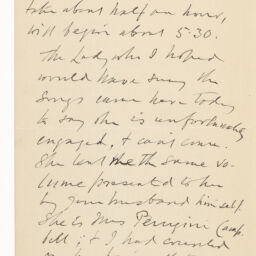 take about half an hour,
will begin about 5.30.
The Lady who I hoped
would have sung the
Songs came here today
to say she is unfortunately
engaged, & can't come.
She lent me the same vo-
lume presented to her
by your husband himself.
She is Mrs Perugini Camp-
bell; & I had counted